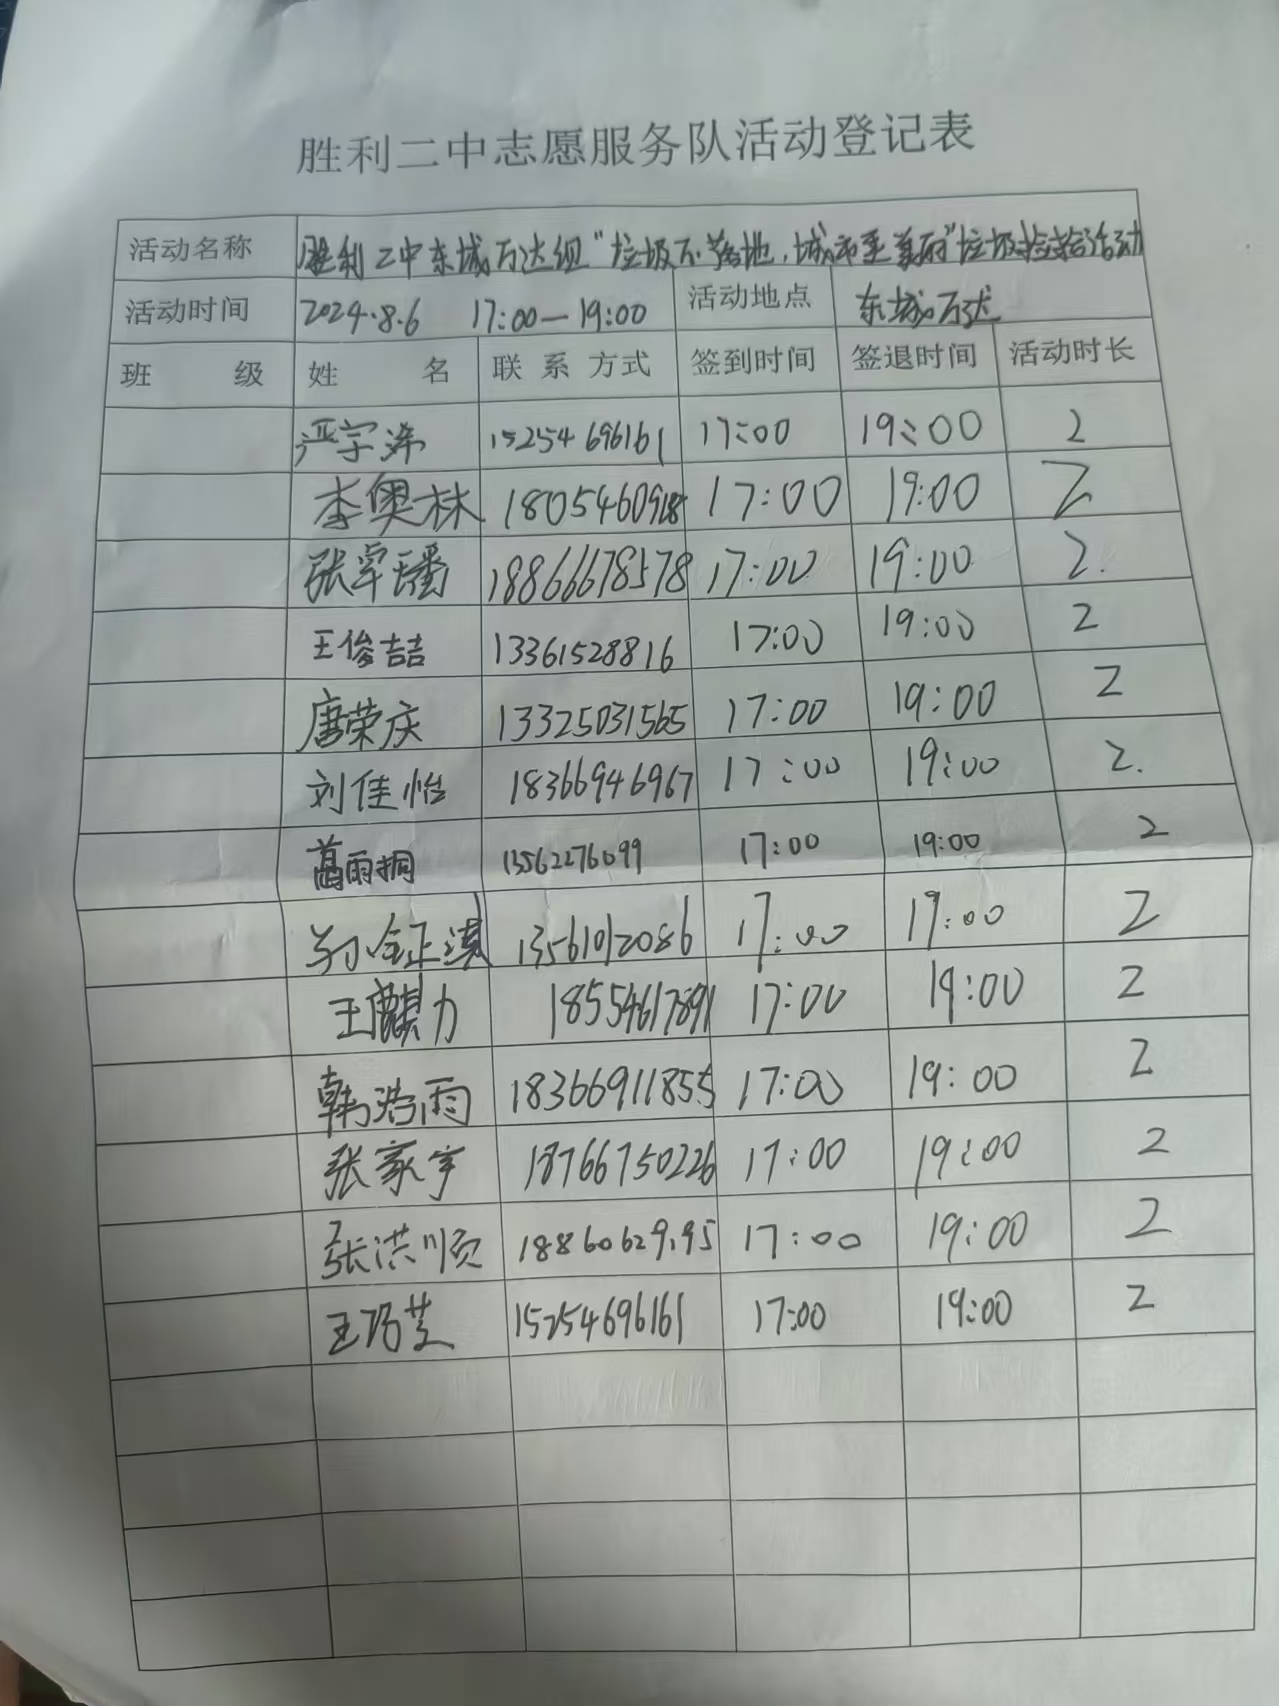 胜利二中志愿服务队活动登记表
活动名称 胜利二中东城万达组“垃圾不落地，城市更美丽”垃圾捡拾活动
活动时间 2024.8.6 17:00—19:00 活动地点 东城万达
班 级 姓 名 联系方式 签到时间 签退时间 活动时长
严宇 15254696161 17:00 19:00 2
李奥林 17:00 19:00 2
张 18866678578 17:00 19:00 2.
王俊喆 13361528816 17:00 19:00 2
唐荣庆 13325031565 17:00 19:00 2
刘佳怡 18366946967 17:00 19:00 2.
葛雨桐 13562276099 17:00 19:00 2
13561012086 17:00 19:00 2
王麒力 18554617891 17:00 19:00 2
韩浩雨 18366911855 17:00 19:00 2
张家宇 18766750226 17:00 19:00 2
张洪顺 17:00 19:00 2
王巧芝 15254696161 17:00 19:00 2